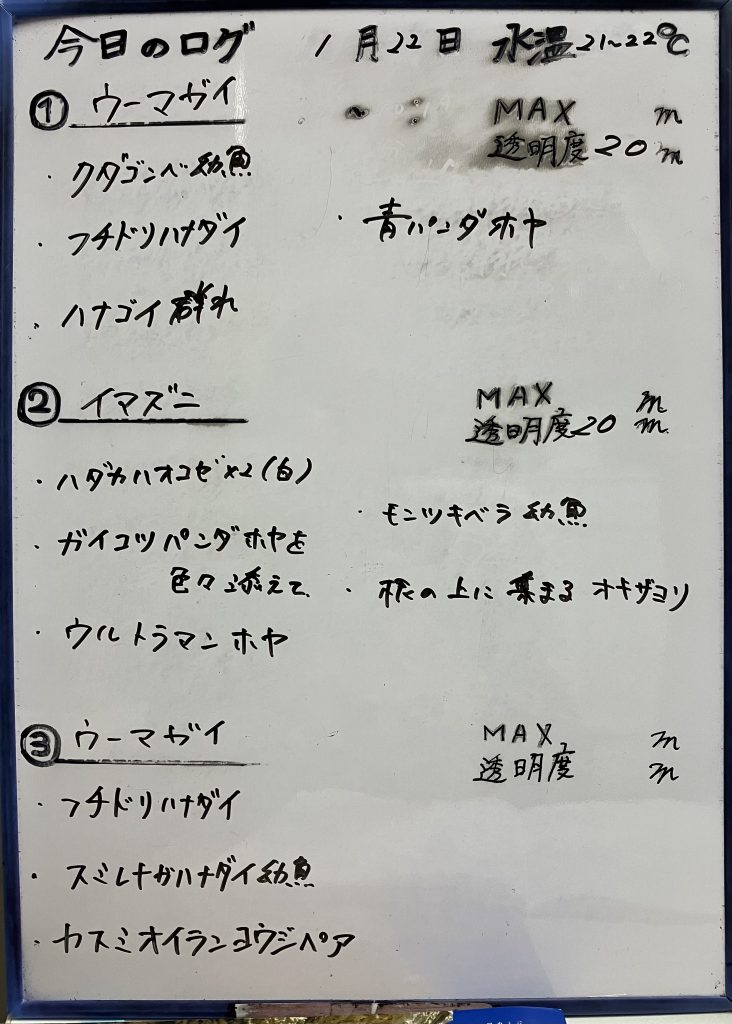 今日のログ 1月22日 水温21~22℃
① ウーマガイ MAX m
透明度20m
・クダゴンベ幼魚
・フチドリハナダイ ・青パンダホヤ
・ハナゴイ群れ
② イマズニ MAX m
透明度20m
・ハダカハオコゼ×2(白)
・モンツキベラ幼魚
・ガイコツパンダホヤを
色々添えて ・根の上に集まるオキザヨリ
・ウルトラマンホヤ
③ ウーマガイ MAX m
透明度 m
・フチドリハナダイ
・スミレナガハナダイ幼魚
・カスミオイランヨウジペア